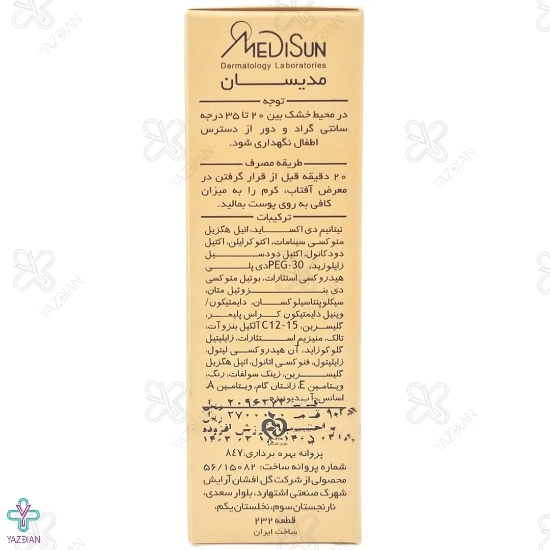 MEDISUN
Dermatology Laboratories
مدیسان
توجه
در محیط خشک بین ۲۰ تا ۳۵ درجه
سانتی گراد و دور از دسترس
اطفال نگهداری شود.
طریقه مصرف
۲۰ دقیقه قبل از قرار گرفتن در
معرض آفتاب، کرم را به میزان
کافی به روی پوست بمالید.
ترکیبات
تیتانیم دی اکساید، اتیل هگزیل
متوکسی سینامات، اکتوکرایلن، اکتیل
دودکانول، اکتیل دودسیل
زایلوزید، PEG-30 دی پلی
هیدروکسی استئارات، بوتیل متوکسی
دی بنزوئیل متان،
سیکلوپنتاسیلوکسان، دایمتیکون/
وینیل دایمتیکون کراس پلیمر،
گلیسرین، C12-15 آلکیل بنزوآت،
تالک، منیزیم استئارات، زایلیتیل
گلوکوزاید، آن هیدروکسی لیتول،
زایلیتول، فنوکسی اتانول، اتیل هگزیل
گلیسرین، زینک سولفات، رنگ،
ویتامین E، زانتان گام، ویتامین A،
اسانس، آب دیونیزه
پروانه بهره برداری: ۸۴۷
شماره پروانه ساخت: ۵۶/۱۵۰۸۲
محصولی از شرکت گل افشان آرایش
شهرک صنعتی اشتهارد، بلوار سعدی،
نارنجستان سوم، نخلستان یکم،
قطعه ۲۳۲
ساخت ایران
YAZDIAN